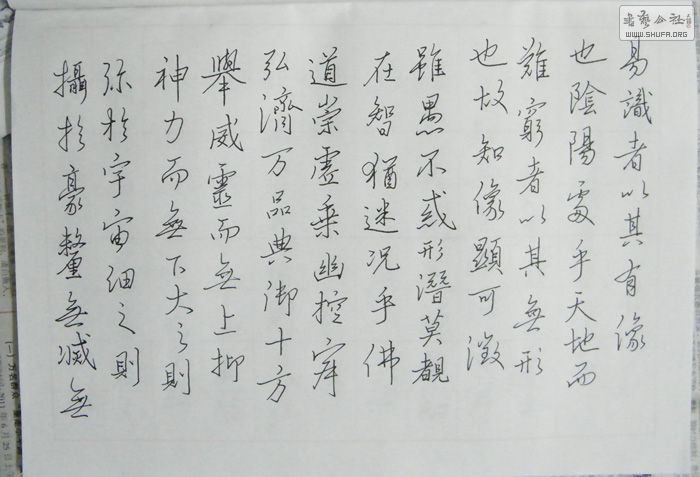 易識者以其有像
也陰陽處乎天地而
難窮者以其無形
也故知像顯可徵
雖愚不惑形潛莫覩
在智猶迷況乎佛
道崇虛乘幽控寂
弘濟万品典御十方
舉威靈而無上抑
神力而無下大之則
弥於宇宙細之則
攝於豪釐無滅無
書藝公社
WWW.SHUFA.ORG